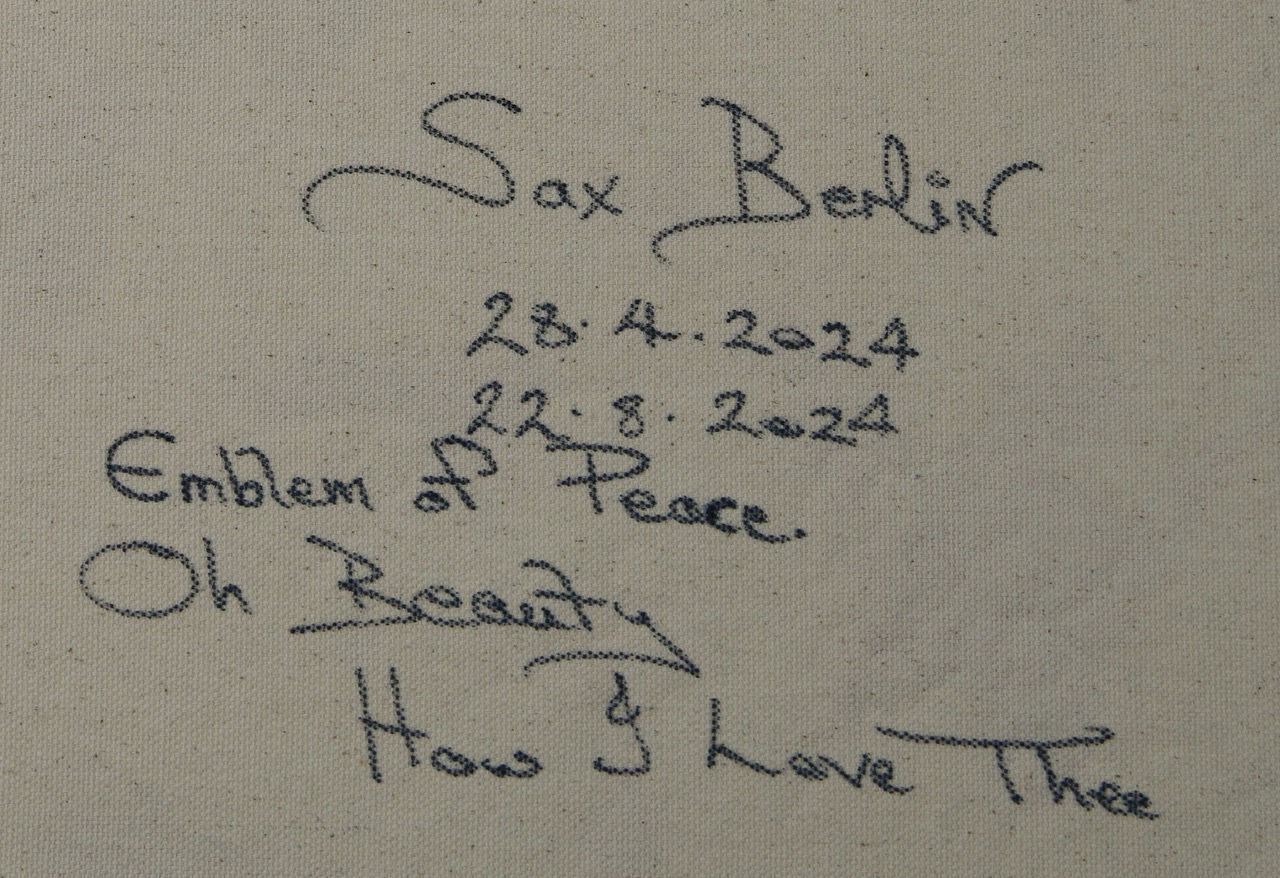 Sax Berlin
28.4.2024
22.8.2024
Emblem of Peace.
Oh Beauty
How I Love Thee